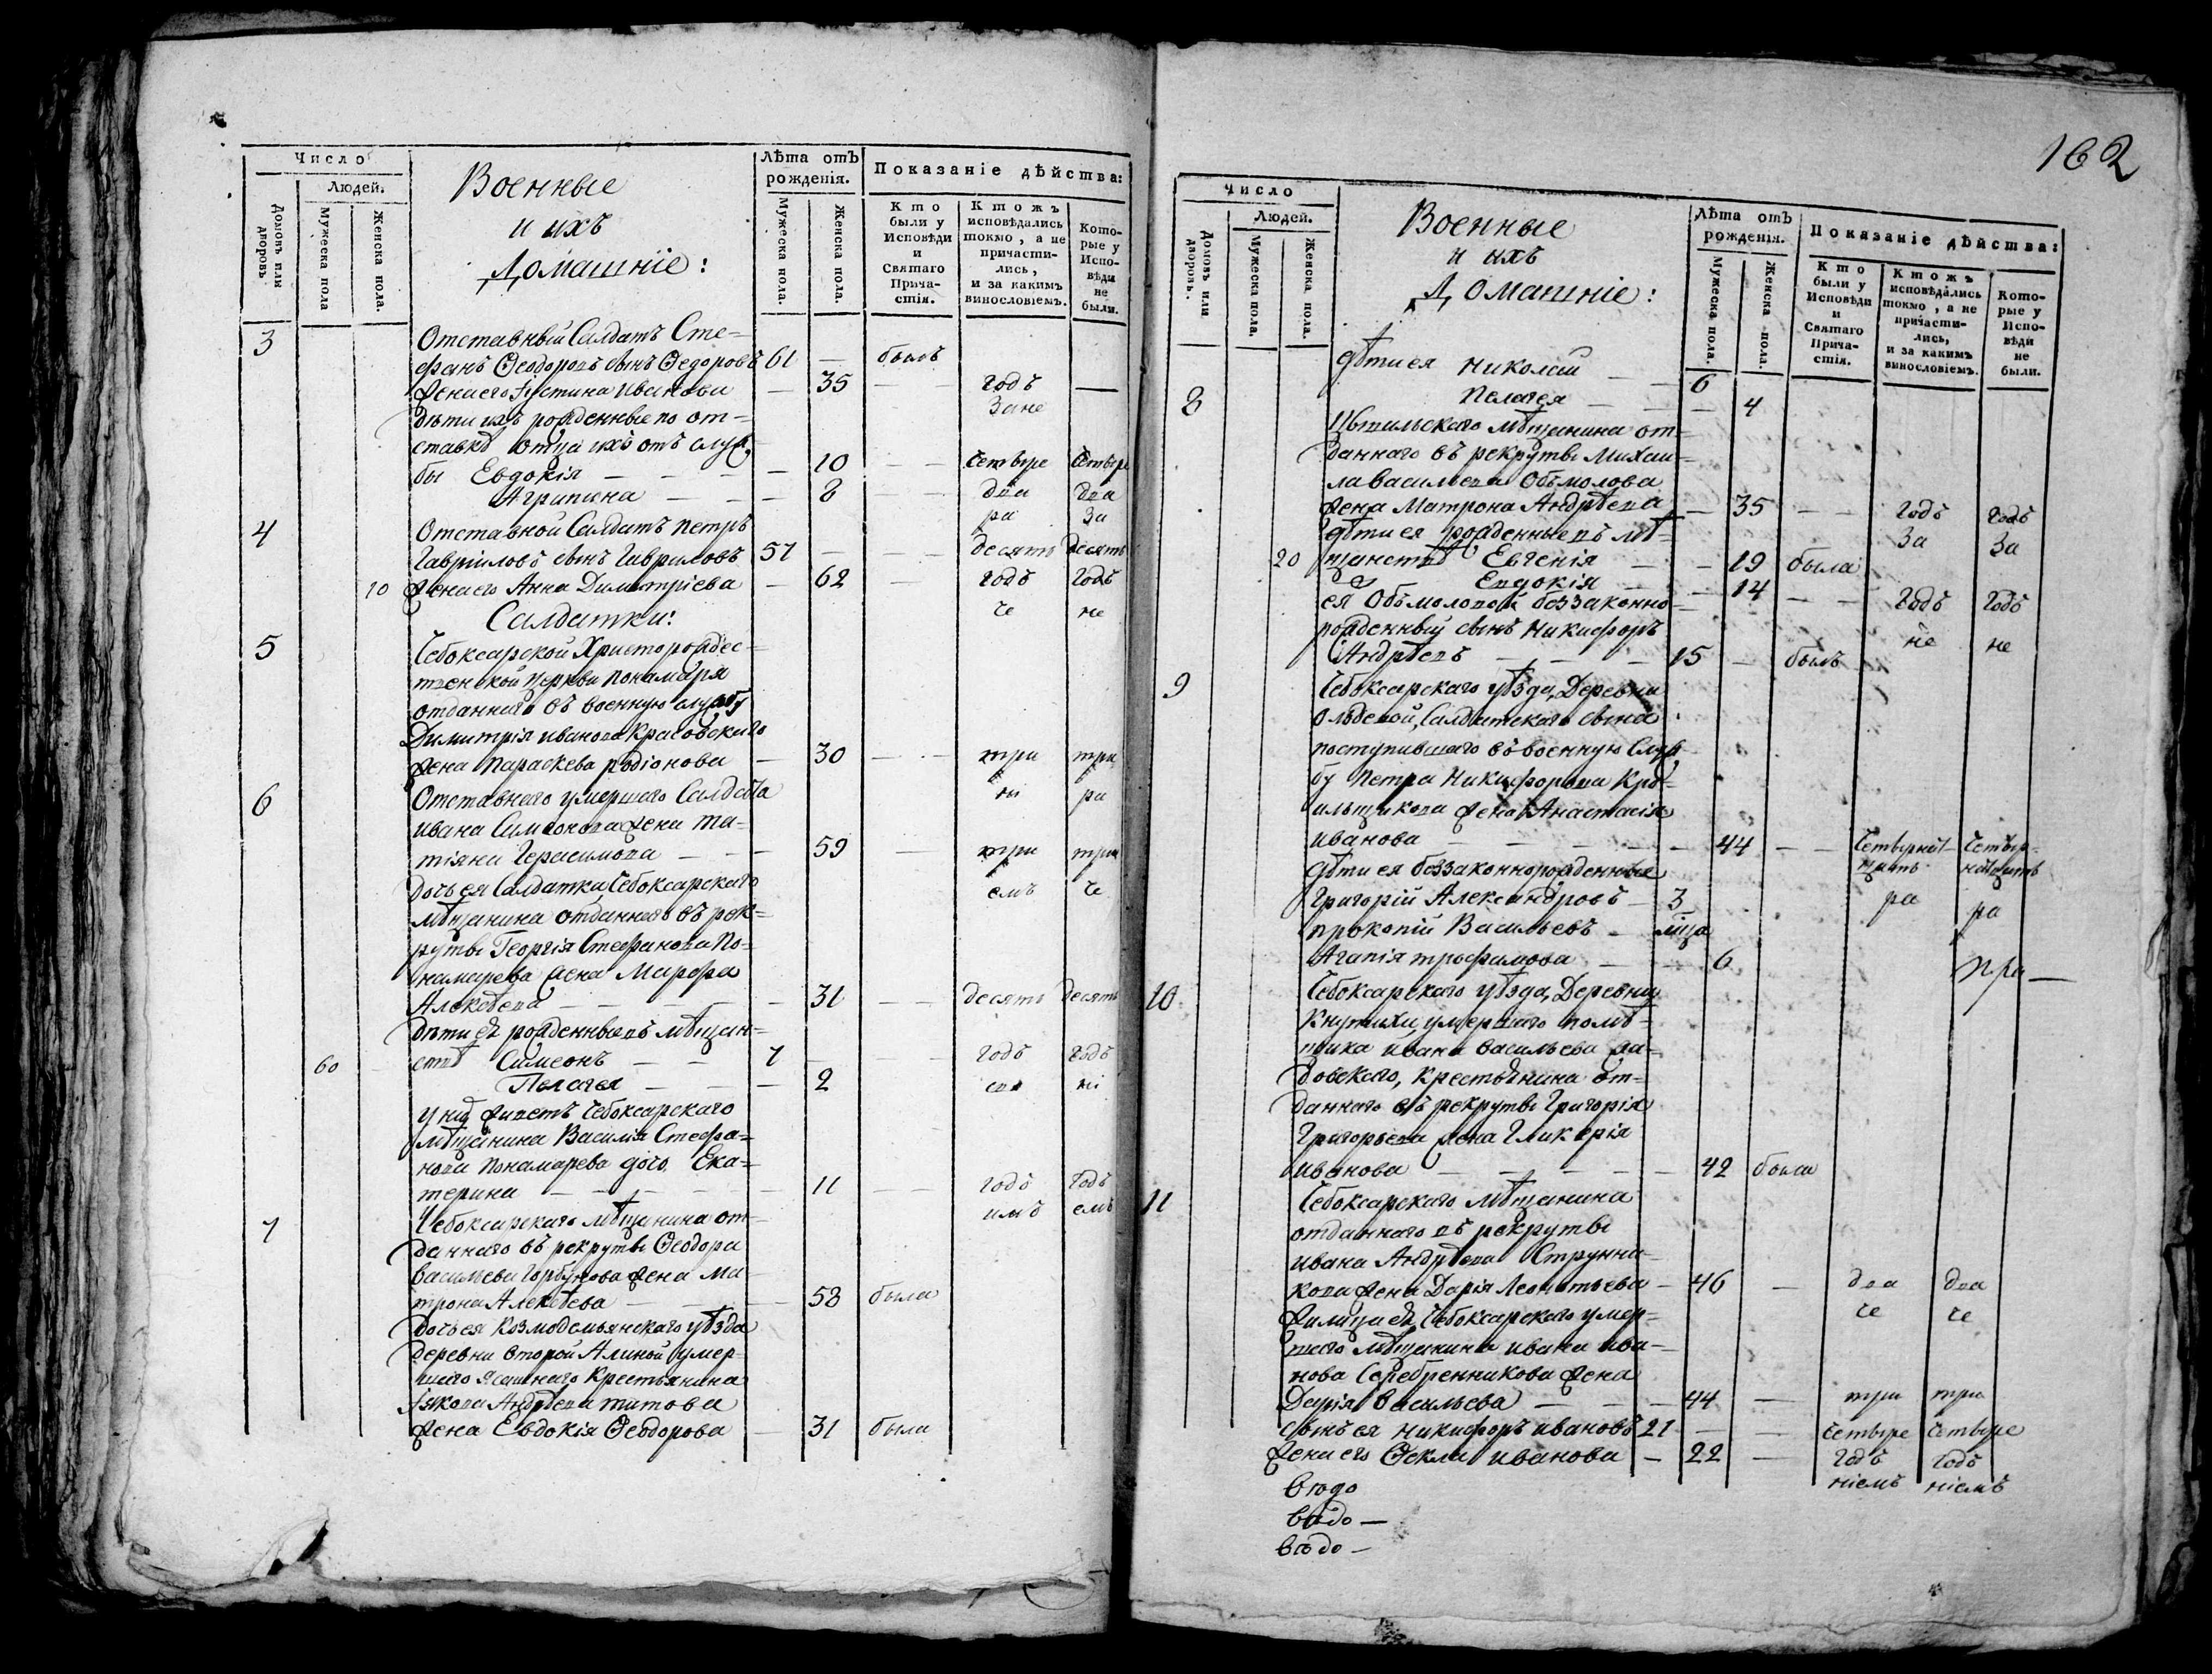 Число
Людей.
Домовъ или дворовъ
Мужеска пола
Женска пола.
Военные
и ихъ
Домашніе:
Лѣта отъ рожденія.
Мужеска пола.
Женска пола.
Показаніе дѣйства:
Кто были у Исповѣди и Святаго Прича-стія.
Ктожъ исповѣдались токмо, а не причасти-лись, и за какимъ винословіемъ.
Кото-рые у Испо-вѣди не были.
3 Отставный Салдатъ Сте=
фанъ Ѳеодоровъ сынъ Ѳедоровъ 61 — былъ
жена его Іустина Иванова — 35 — — годъ —
дѣти ихъ рожденные по от=
ставкѣ отца ихъ отъ служ
бы Евдокія — — — 10 — — четыре четыре
Агрипина — — — 8 два два
4 Отставной Салдатъ Петръ ра за
Гавріиловъ сынъ Гавриловъ 57 — — — десять десять
10 жена его Анна Димитріева — 62 — годъ годъ
Салдатки: не
5 Чебоксарской Христорождес=
твенской церкви пономаря
отданнаго въ военную службу
Димитрія Иванова Красовскаго
жена Параскева Родіонова — 30 — — три три
6 Отставнаго умершаго Салдата ра
Ивана Симеонова жена Та=
тіяна Герасимова — — — 59 — три три
дочь ея Салдатка Чебоксарскаго емъ че
мѣщанина отданнаго въ рек=
руты Георгія Стефанова По=
намарева жена Марфа
Алексѣева — — — — 31 — — десять десять
дѣти ея рожденные въ мѣщан=
60 ствѣ Симеонъ — — 7 — — годъ годъ
Пелагея — — — 2
у нихъ живетъ Чебоксарскаго
мѣщанина Василія Стефа=
нова Понамарева дочь Ека=
терина — — — — 11 — — годъ годъ
7 Чебоксарскаго мѣщанина от= емъ
даннаго въ рекруты Ѳеодора
Васильева Горбунова жена Ма
трона Алексѣева — — — 58 была
дочь ея Козмодемьянскаго уѣзда
деревни второй Алиной умер
шаго ясашнаго Крестьянина
Іякова Андрѣева Титова
жена Евдокія Ѳеодорова — 31 была
162
Число
Людей.
Домовъ или дворовъ.
Мужеска пола.
Женска пола.
Военные
и ихъ
Домашніе:
Лѣта отъ рожденія.
Мужеска пола.
Женска пола.
Показаніе дѣйства:
Кто были у Исповѣди и Святаго Прича-стія.
Ктожъ исповѣдались токмо, а не причасти-лись, и за какимъ винословіемъ.
Кото-рые у Испо-вѣди не были.
дѣти ея Николай — — 6
Пелагея — — — 4
8 Цывильскаго мѣщанина от=
даннаго въ рекруты Михаи=
ла Васильева Обмолова
жена Матрона Андрѣева — 35 — — годъ годъ
дѣти ея рожденные въ мѣ= за за
20 щанствѣ Евгенія — — 19 была
Евдокія — — 14 — — годъ годъ
ея Обмоловой беззаконно не не
рожденный сынъ Никифоръ
Андрѣевъ — — — 15 — былъ
9 Чебоксарскаго уѣзда, Деревни
Ольдеевой, Салдатскаго сына
поступившаго въ военную служ
бу Петра Никифорова Кро=
ильщикова жена Анастасія
Иванова — — — — 44 — — четырнад= четыр=
дѣти ея беззаконнорожденные цать надцать
Григорій Александровъ — 3 ра ра
Прокопій Васильевъ — мца
Агапія Трофимова — — 6 при —
10 Чебоксарскаго уѣзда, Деревни
Кнутихи, умершаго помѣ=
щика Ивана Васильева
довскаго, крестьянина от=
даннаго въ рекруты Григорія
Григорьева жена Гликерія
Иванова — — — — 42 была
11 Чебоксарскаго мѣщанина
отданнаго въ рекруты
Ивана Андрѣева Струнни=
кова жена Дарія Леонтьева — 46 — два два
Жилица ея Чебоксарскаго умер= че че
шаго мѣщанина Ивана Ива=
нова Серебренникова жена
Дарія Васильева — — — 44 — три три
сынъ ея Никифоръ Ивановъ 21 — — четыре четыре
жена его Ѳекла Иванова — 22 — годъ годъ
ніемъ ніемъ